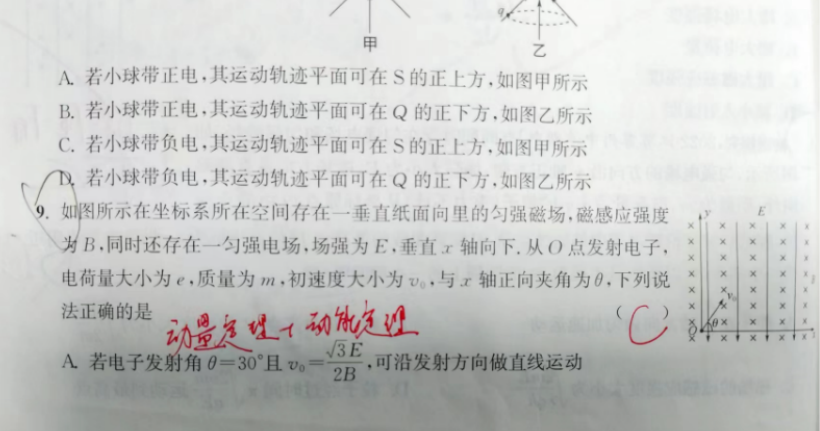 q
甲
乙
A. 若小球带正电,其运动轨迹平面可在 S 的正上方,如图甲所示
B. 若小球带正电,其运动轨迹平面可在 Q 的正下方,如图乙所示
C. 若小球带负电,其运动轨迹平面可在 S 的正上方,如图甲所示
D. 若小球带负电,其运动轨迹平面可在 Q 的正下方,如图乙所示
9. 如图所示在坐标系所在空间存在一垂直纸面向里的匀强磁场,磁感应强度
为 B,同时还存在一匀强电场,场强为 E,垂直 x 轴向下. 从 O 点发射电子,
电荷量大小为 e,质量为 m,初速度大小为 v₀,与 x 轴正向夹角为θ,下列说
法正确的是 ( C )
动量定理+动能定理
y E
v₀
O θ
A. 若电子发射角 θ=30°且 v₀=√3E/2B,可沿发射方向做直线运动